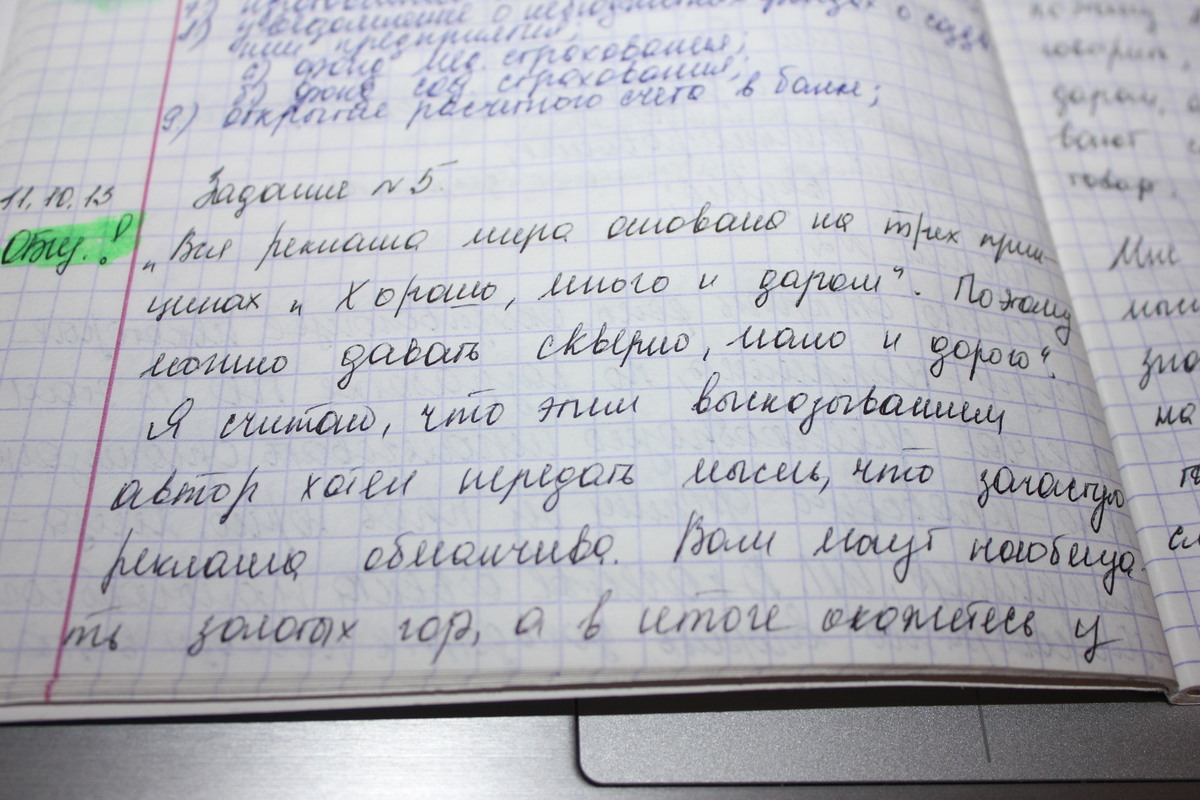 8) уведомление о о созда
нии предприятия;
а) фонд мед. страхования;
б) фонд соц. страхования;
9) открытие расчетного счета в банке;
11.10.13 Задание №5.
Общ.!
„Вся реклама мира основана на трех прин-
ципах „Хорошо, много и даром“. Поэтому
можно давать скверно, мало и дорого“.
Я считаю, что этим высказыванием
автор хотел передать мысль, что зачастую
реклама обманчива. Вам могут наобеща-
ть золотых гор, а в итоге окажетесь у
говорит,
даром,
вают
товар.
Мне
на